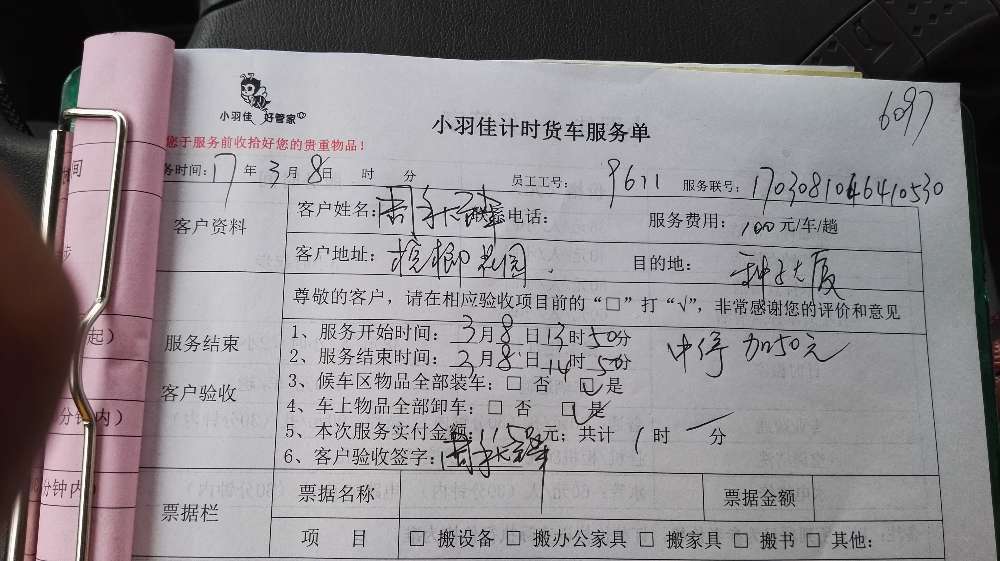 6097
小羽佳 好管家
小羽佳计时货车服务单
您于服务前收拾好您的贵重物品!
务时间: 17 年 3 月 8 日 时 分 员工工号: 9611 服务联号:
客户资料
客户姓名: 联系电话: 服务费用: 100元/车/趟
客户地址: 槟榔花园. 目的地: 种子大厦
服务结束
客户验收
尊敬的客户,请在相应验收项目前的“□”打“√”,非常感谢您的评价和意见
1、服务开始时间: 3月8日13时50分 中停 加50元
2、服务结束时间: 3月8日14时50分
3、候车区物品全部装车: □ 否 □是
4、车上物品全部卸车: □ 否 □是
5、本次服务实付金额: 150元; 共计 1 时 一 分
6、客户验收签字:
票据栏
票据名称 票据金额
项 目 □ 搬设备 □ 搬办公家具 □ 搬家具 □ 搬书 □ 其他:
起)
分钟内)
分钟内)